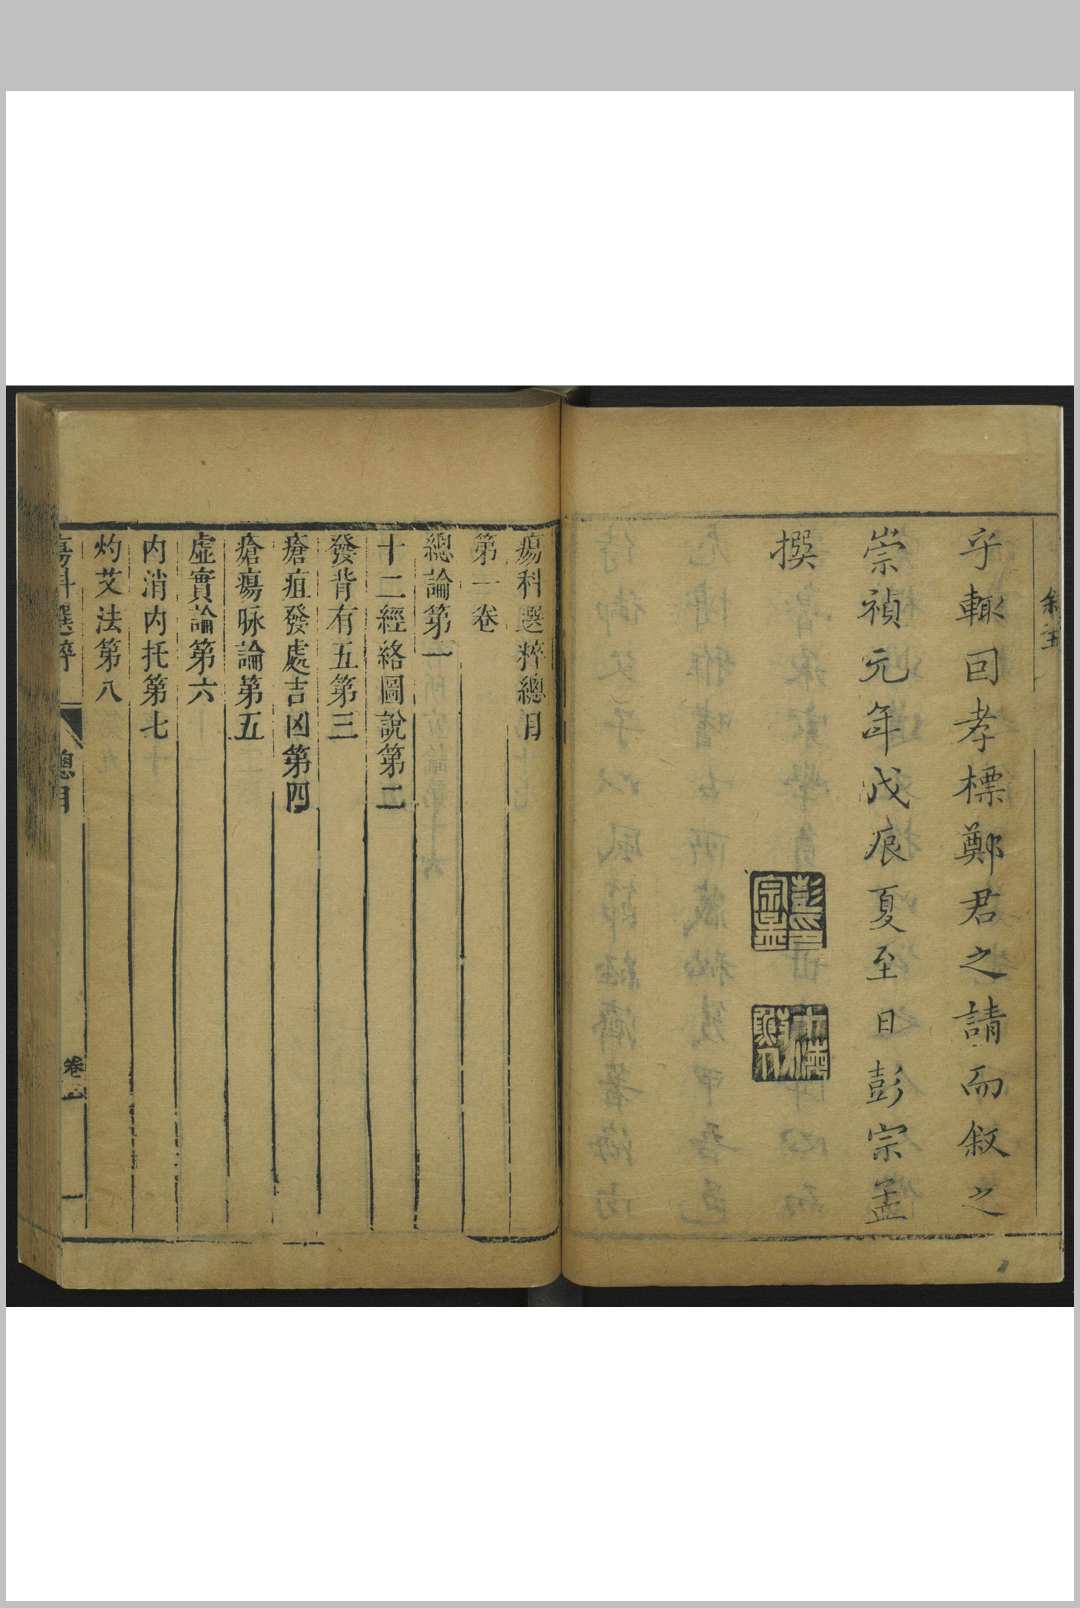 叙
乎輙因孝標鄭君之請而叙之
崇禎元年戊㾗夏至日彭宗孟
撰
彭印宗孟
瘍科選粹總目
第一卷
總論第一
十二經絡圖說第二
發背有五第三
瘡疽發處吉凶第四
瘡瘍脉論第五
虛實論第六
内消内托第七
灼艾法第八
瘍科選粹
總目
卷
一